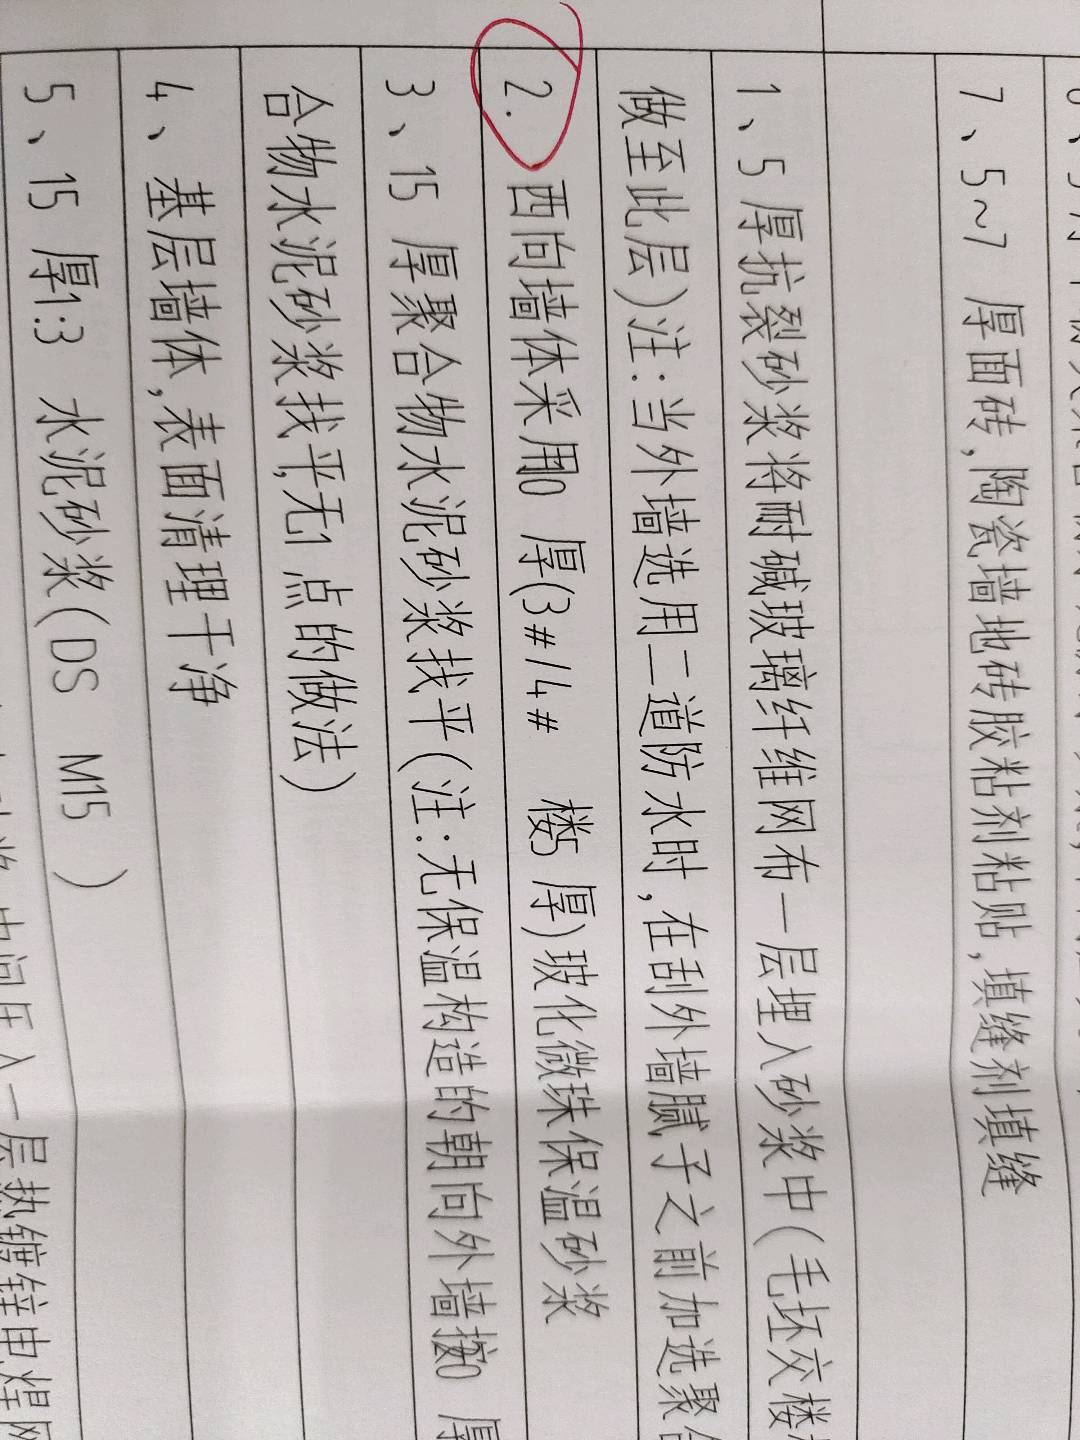 7、5~7 厚面砖,陶瓷墙地砖胶粘剂粘贴,填缝剂填缝
1、5 厚抗裂砂浆将耐碱玻璃纤维网布一层埋入砂浆中(毛坯交楼
做至此层)注:当外墙选用二道防水时,在刮外墙腻子之前加选聚
2. 西向墙体采用10 厚(3#/4# 楼5 厚)玻化微珠保温砂浆
3、15 厚聚合物水泥砂浆找平(注:无保温构造的朝向外墙按 厚
合物水泥砂浆找平,无1 点的做法)
4、基层墙体,表面清理干净
5、15 厚1:3 水泥砂浆(DS M15 )
中间压入一层热镀锌电焊网